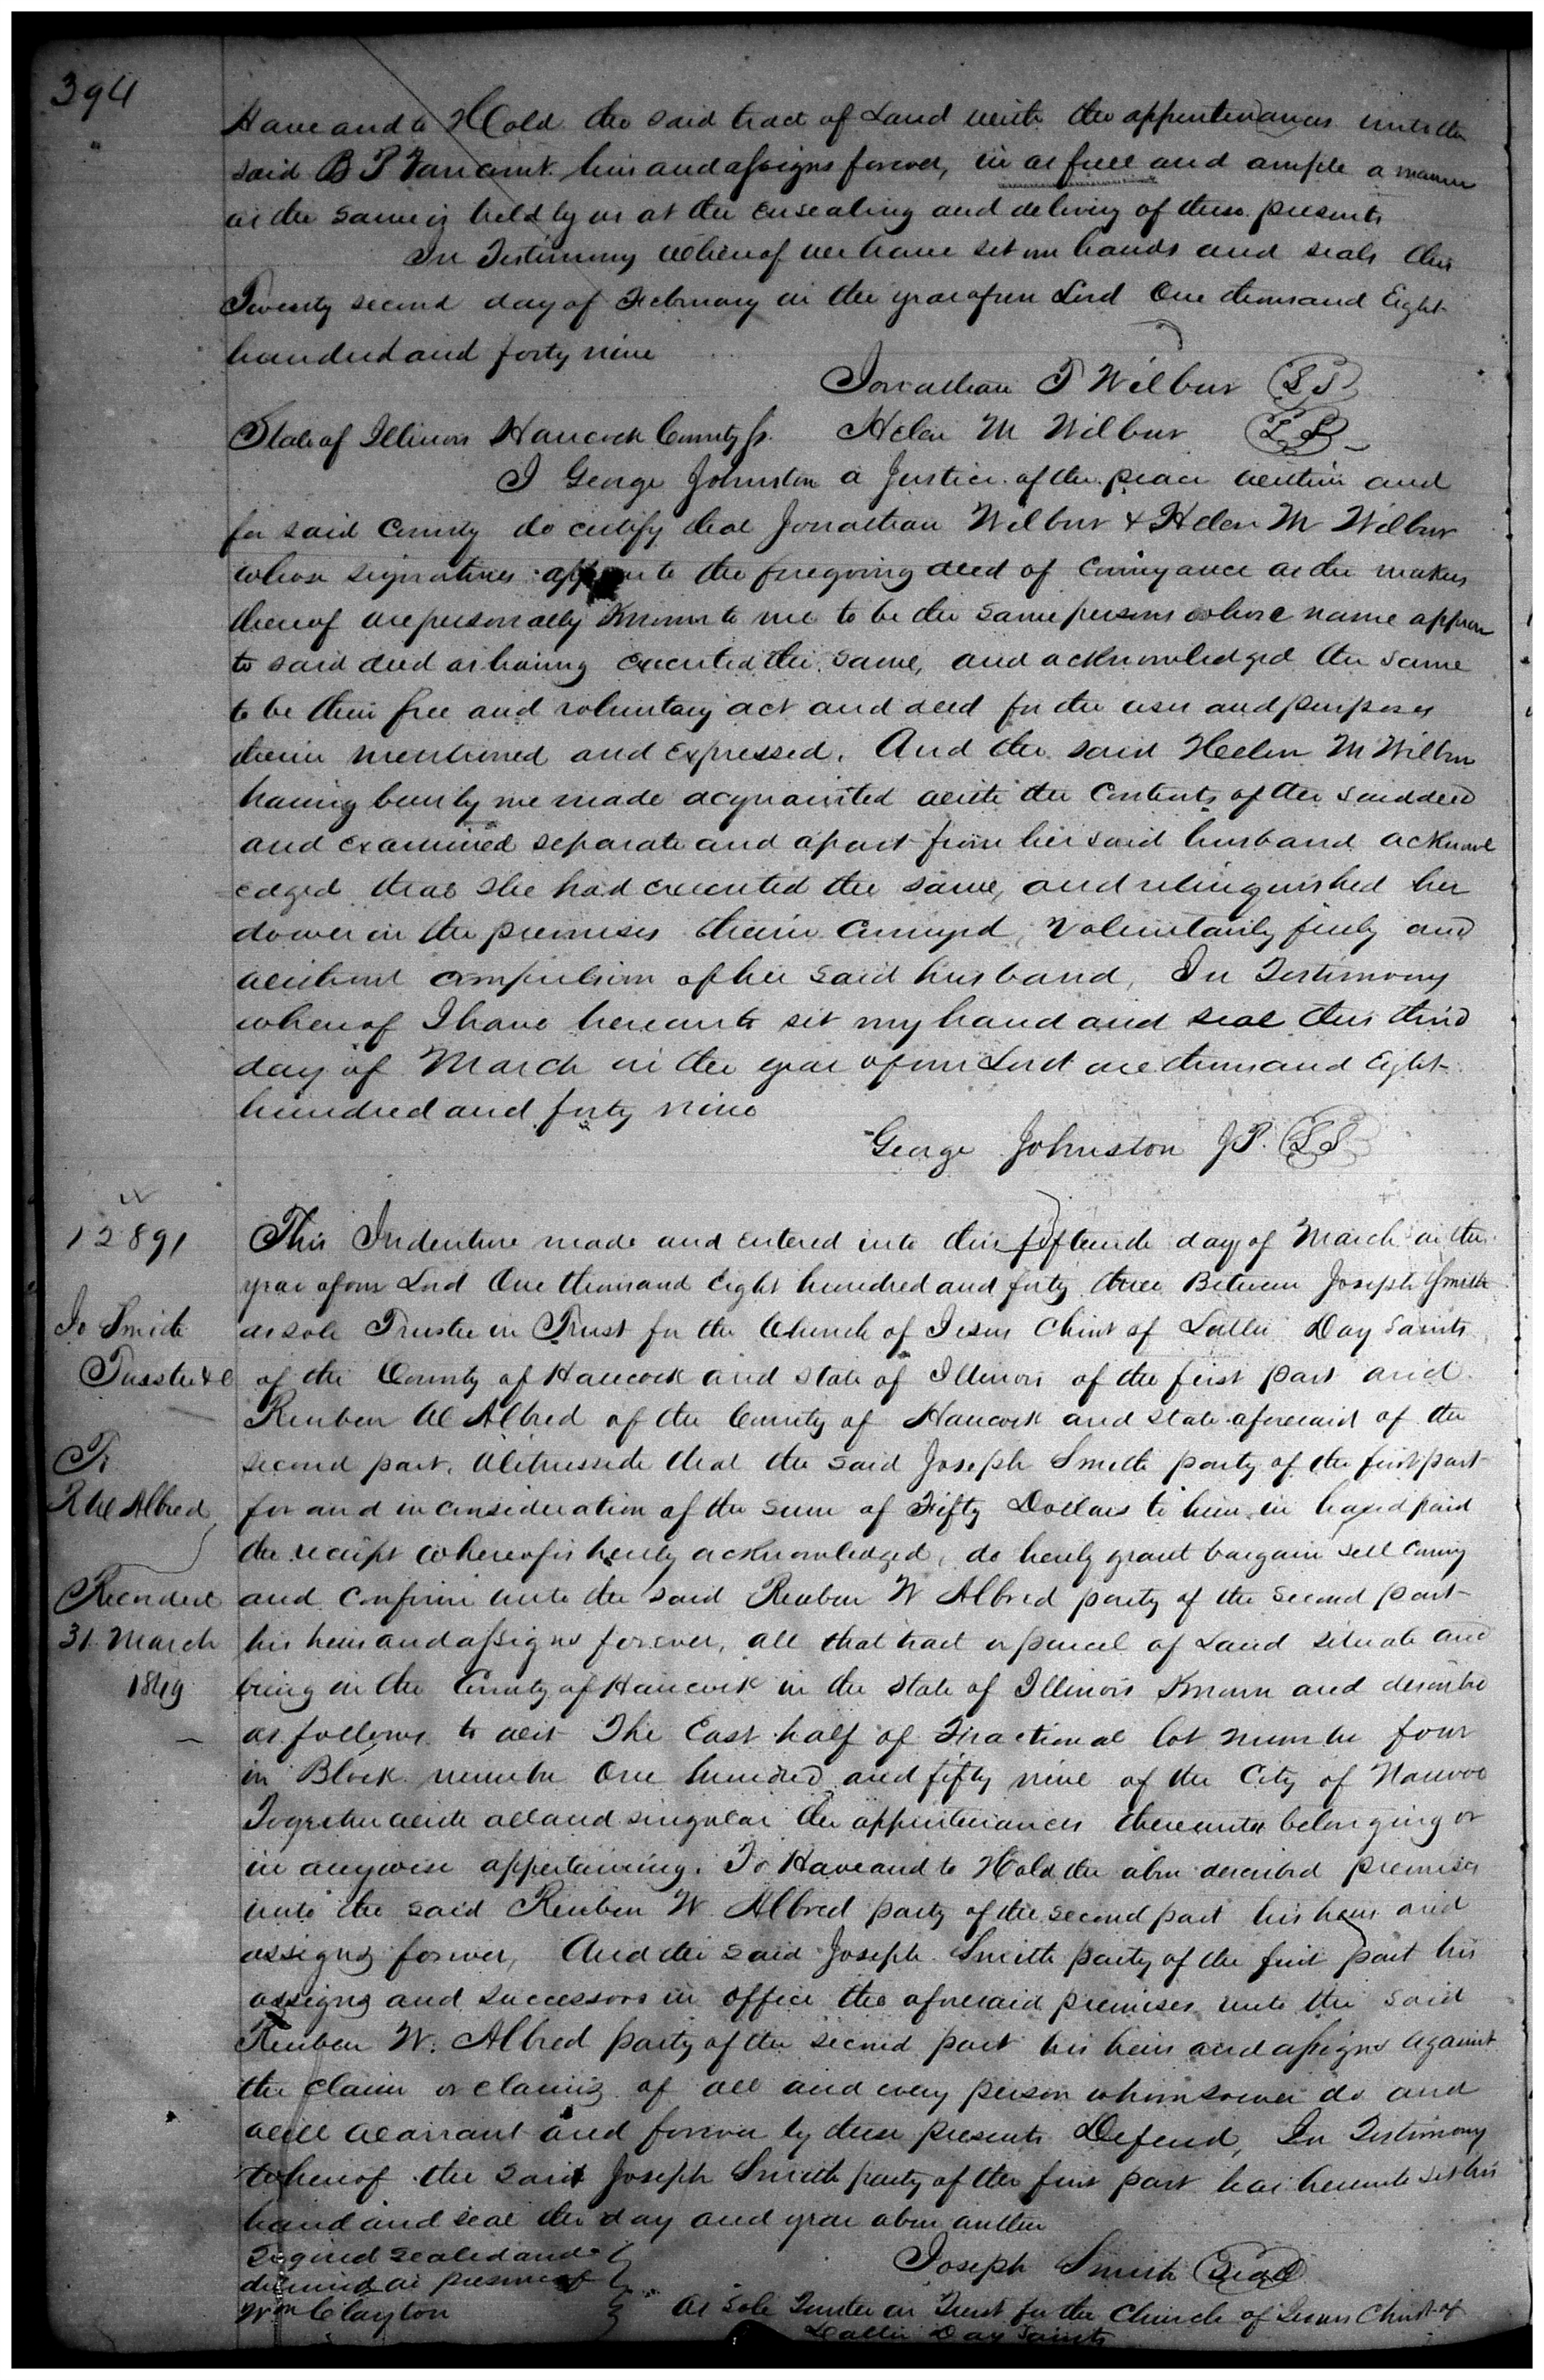 394
Have and to Hold the said tract of Land with the appurtenances unto the
said B T his and assigns forever, in as full and ample a manner
as the same is held by us at the ensealing and delivery of these presents
In Testimony whereof we have set our hands and seals this
Twenty second day of February in the year of our Lord One thousand Eight
hundred and forty nine
Jonathan T Wilbur LS
State of Illinois Hancock County ss. Helen M Wilbur LS
I George Johnston a Justice of the peace within and
for said County do certify that Jonathan Wilbur & Helen M Wilbur
whose signatures appear to the foregoing deed of conveyance as the makers
thereof are personally Known to me to be the same persons whose name appear
to said deed as having executed the same, and acknowledged the same
to be their free and voluntary act and deed for the uses and purposes
therein mentioned and expressed. And the said Helen M Wilbur
having been by me made acquainted with the Contents of the said deed
and examined separate and apart from her said husband acknowl
edged that she had executed the same, and relinquished her
dower in the premises therein Conveyed, voluntarily freely and
without compulsion of her said husband, In Testimony
whereof I have hereunto set my hand and seal this third
day of March in the year of our Lord one thousand Eight
hundred and forty nine
George Johnston J.P. LS
12891
Jo Smith
Trustee &c
To
R W Allred
Recorded
31 March
1849
This Indenture made and entered into this fifteenth day of March in the
year of our Lord One thousand Eight hundred and forty three Between Joseph Smith
as sole Trustee in Trust for the Church of Jesus Christ of Latter Day Saints
of the County of Hancock and state of Illinois of the first part and
Reuben W Allred of the County of Hancock and state aforesaid of the
second part, Witnesseth that the said Joseph Smith party of the first part
for and in consideration of the sum of Fifty Dollars to him in hand paid
the receipt whereof is hereby acknowledged, do hereby grant bargain sell convey
and confirm unto the said Reuben W Allred party of the second part
his heirs and assigns forever, all that tract or parcel of Land situate and
being in the County of Hancock in the state of Illinois Known and described
as follows to wit The East half of Fractional lot number four
in Block number One hundred and fifty nine of the City of Nauvoo
Together with all and singular the appurtenances thereunto belonging or
in anywise appertaining. To Have and to Hold the above described premises
unto the said Reuben W Allred party of the second part his heirs and
assigns forever, And the said Joseph Smith party of the first part his
assigns and successors in office the aforesaid premises unto the said
Reuben W. Allred party of the second part his heirs and assigns against
the claim or claims of all and every person whomsoever do and
will warrant and forever by these presents Defend, In Testimony
whereof the said Joseph Smith party of the first part has hereunto set his
hand and seal the day and year above written
Signed sealed and
delivered in presence of
Wm Clayton
Joseph Smith Seal
As Sole Trustee in Trust for the Church of Jesus Christ of
Latter Day Saints